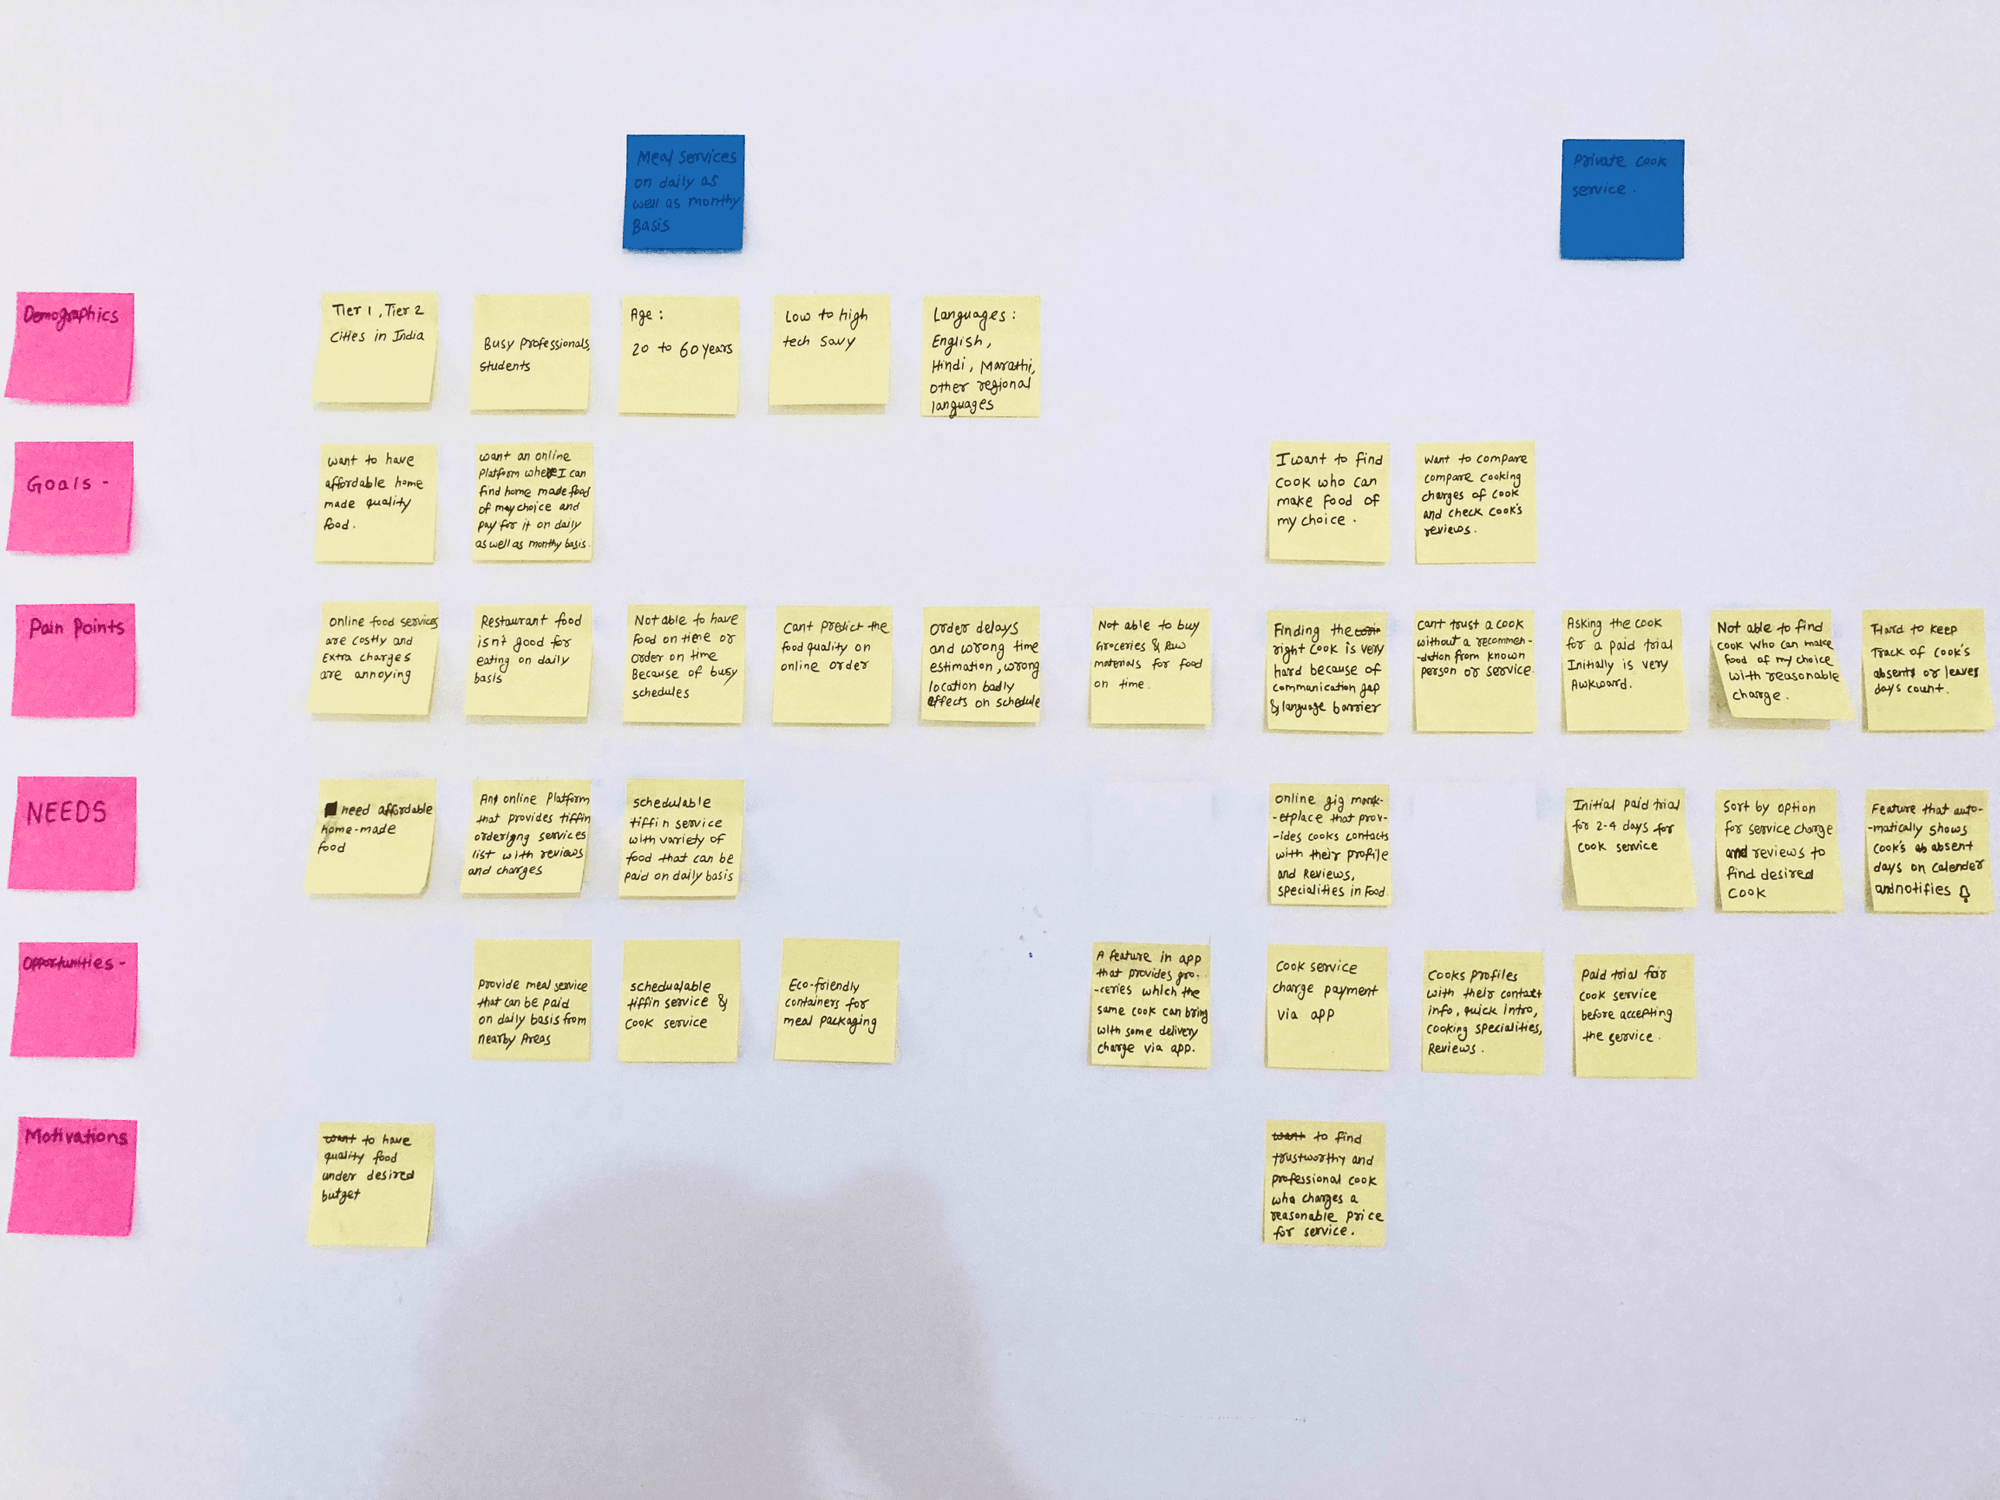 Meal services
on daily as
well as monthy
Basis
Private cook
service.
Demographics
Tier 1, Tier 2
cities in India
Busy professionals,
students
Age:
20 to 60 years
Low to high
tech savy
Languages:
English,
Hindi, Marathi,
other regional
languages
Goals -
want to have
affordable home
made quality
food.
want an online
Platform where I can
find home made food
of my choice and
pay for it on daily
as well as monthy basis.
I want to find
cook who can
make food of
my choice.
Want to compare
compare cooking
charges of cook
and check cook's
reviews.
Pain Points
online food services
are costly and
Extra charges
are annoying
Restaurant food
isn't good for
eating on daily
basis
Not able to have
food on time or
order on time
Because of busy
schedules
Cant predict the
food quality on
online order
order delays
and wrong time
estimation, wrong
location badly
affects on schedule
Not able to buy
Groceries & Raw
materials for food
on time.
Finding the
right cook is very
hard because of
communication gap
& language barrier
cant trust a cook
without a recommen-
-dation from known
person or service.
Asking the cook
for a paid trial
Initially is very
Awkward.
Not able to find
cook who can make
food of my choice
with reasonable
charge.
Hard to keep
Track of cook's
absents or leaves
days count.
NEEDS
need affordable
home-made
food
An online Platform
that provides tiffin
ordering services
list with reviews
and charges
schedulable
tiffin service
with variety of
food that can be
paid on daily basis
online gig mark-
-etplace that prov-
-ides cooks contacts
with their profile
and Reviews,
specialities in food.
Initial paid trial
for 2-4 days for
cook service
Sort by option
for service charge
and reviews to
find desired
cook
Feature that auto-
-matically shows
cook's ab absent
days on calender
and notifies
Opportunities -
provide meal service
that can be paid
on daily basis from
nearby Areas
schedualable
tiffin service &
cook service
Eco-friendly
containers for
meal packaging
A feature in app
that provides gro-
-ceries which the
same cook can bring
with some delivery
charge via app.
Cook service
charge payment
via app
Cooks profiles
with their contact
info, quick intro,
cooking specialities,
Reviews.
paid trial for
cook service
before accepting
the service.
Motivations
want to have
quality food
under desired
butget
want to find
trustworthy and
professional cook
who charges a
reasonable price
for service.